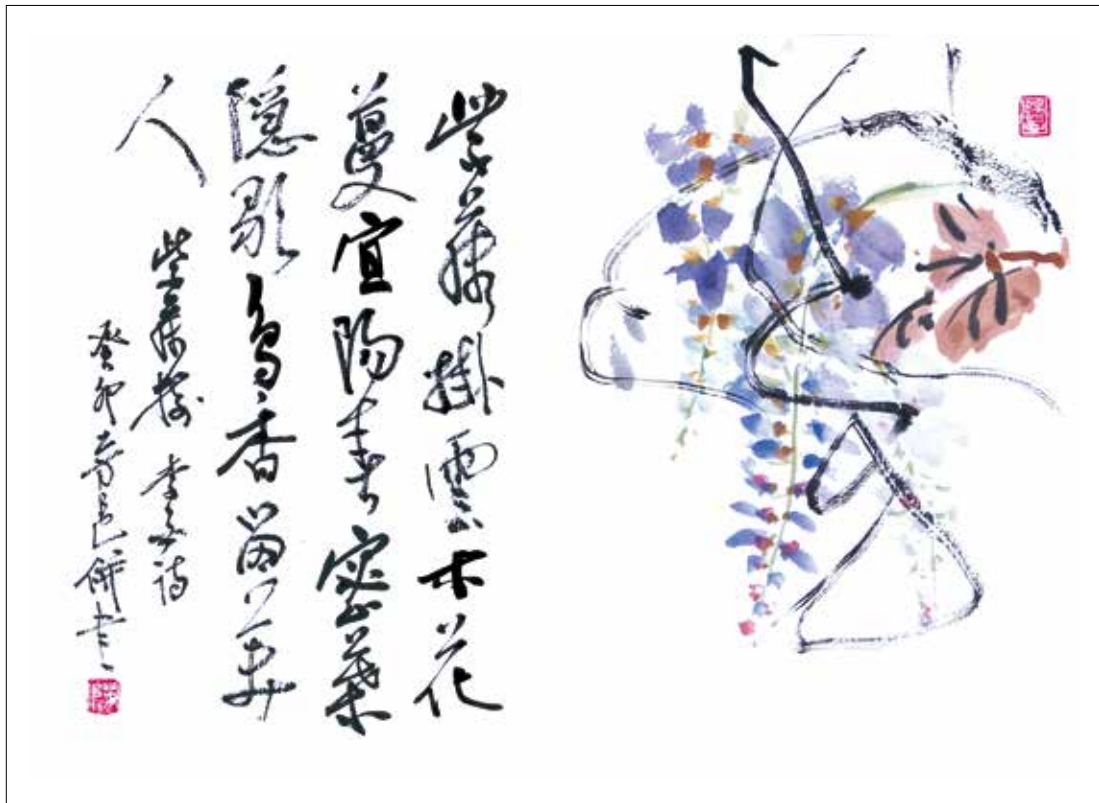 紫藤掛雲木花
蔓宜陽春密葉
隱歌鳥香留美
人
紫藤樹 李白詩
癸卯 併書